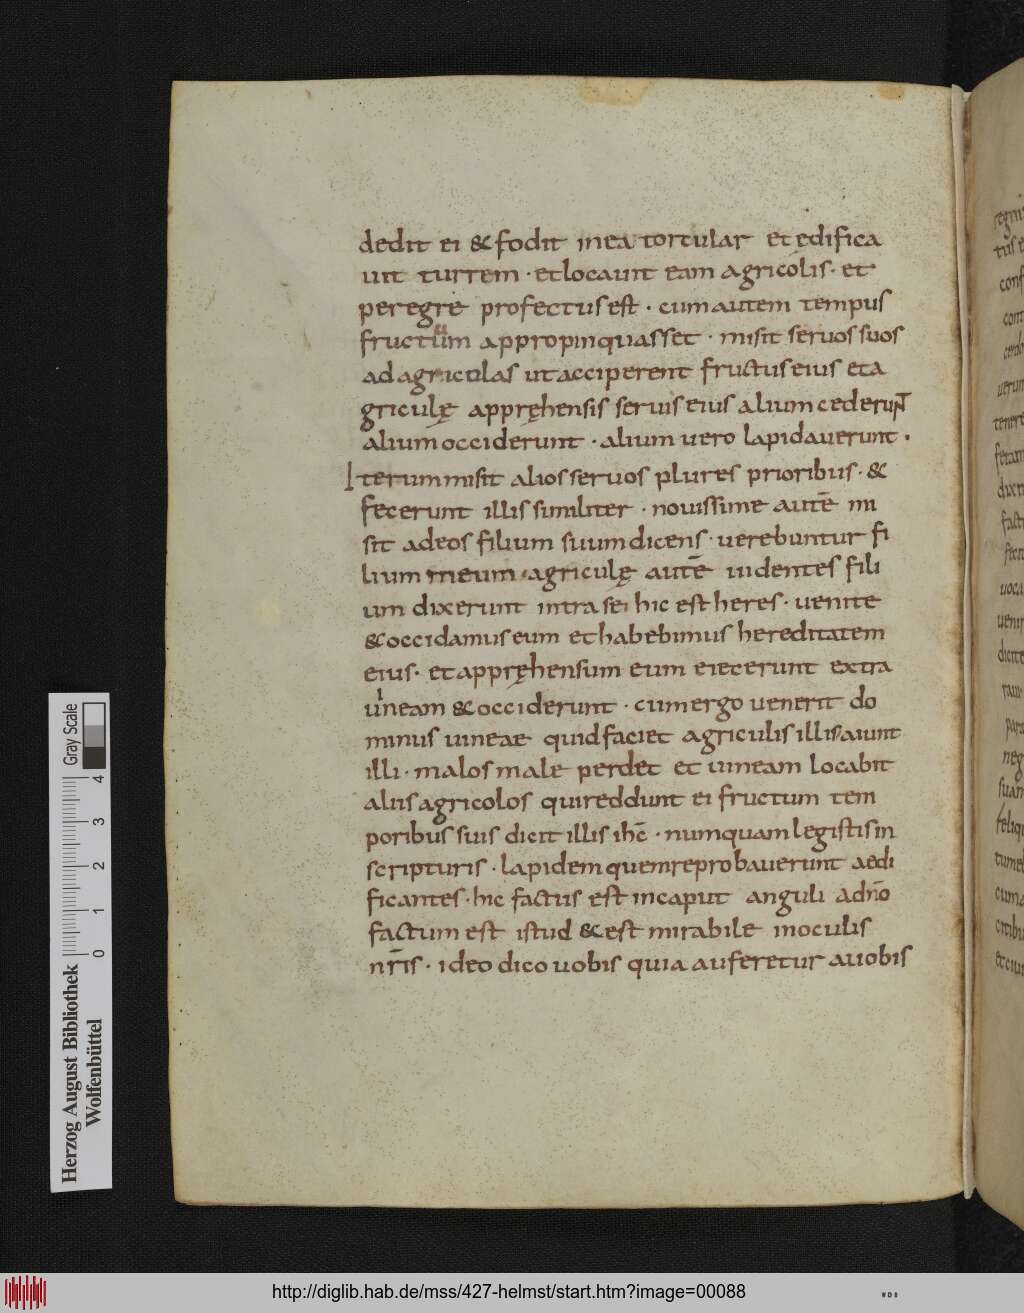 dedit ei & fodit in ea torcular et ędifica
uit turrem · et locauit eam agricolis · et
peregre profectus est · cum autem tempus
fructuum appropinquasset · misit seruos suos
ad agricolas ut acciperent fructus eius et a
griculę appręhensis seruis eius alium cederunt
alium occiderunt · alium uero lapidauerunt ·
Iterum misit alios seruos plures prioribus · &
fecerunt illis similiter · nouissime autē mi
sit ad eos filium suum dicens · uerebuntur fi
lium meum · agriculę autē uidentes fili
um dixerunt intra se hic est heres · uenite
& occidamus eum et habebimus hereditatem
eius · et appręhensum eum eiecerunt extra
uineam & occiderunt · cum ergo uenerit do
minus uineae quid faciet agriculis illis aiunt
illi · malos male perdet et uineam locabit
aliis agricolos qui reddunt ei fructum tem
poribus suis dicit illis ihc̄ · numquam legistis in
scripturis · lapidem quem reprobauerunt aedi
ficantes · hic factus est in caput anguli a dn̄o
factum est istud & est mirabile in oculis
nr̄is · ideo dico uobis quia auferetur a uobis
Gray Scale
4
3
2
1
0
Herzog August Bibliothek
Wolfenbüttel
http://diglib.hab.de/mss/427-helmst/start.htm?image=00088